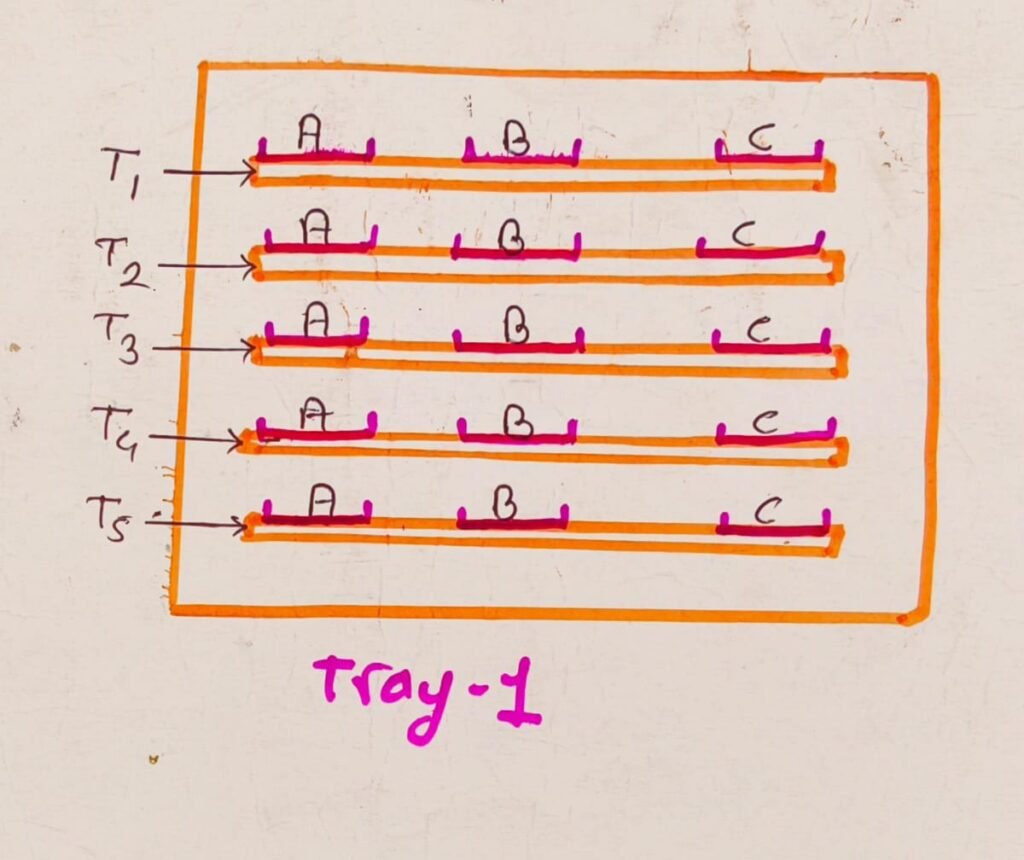 A B C
T1
A B C
T2
A B C
T3
A B C
T4
A B C
T5
Tray-1